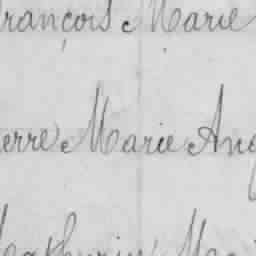 François Marie
ierre Marie Ang
Mathurin Mari